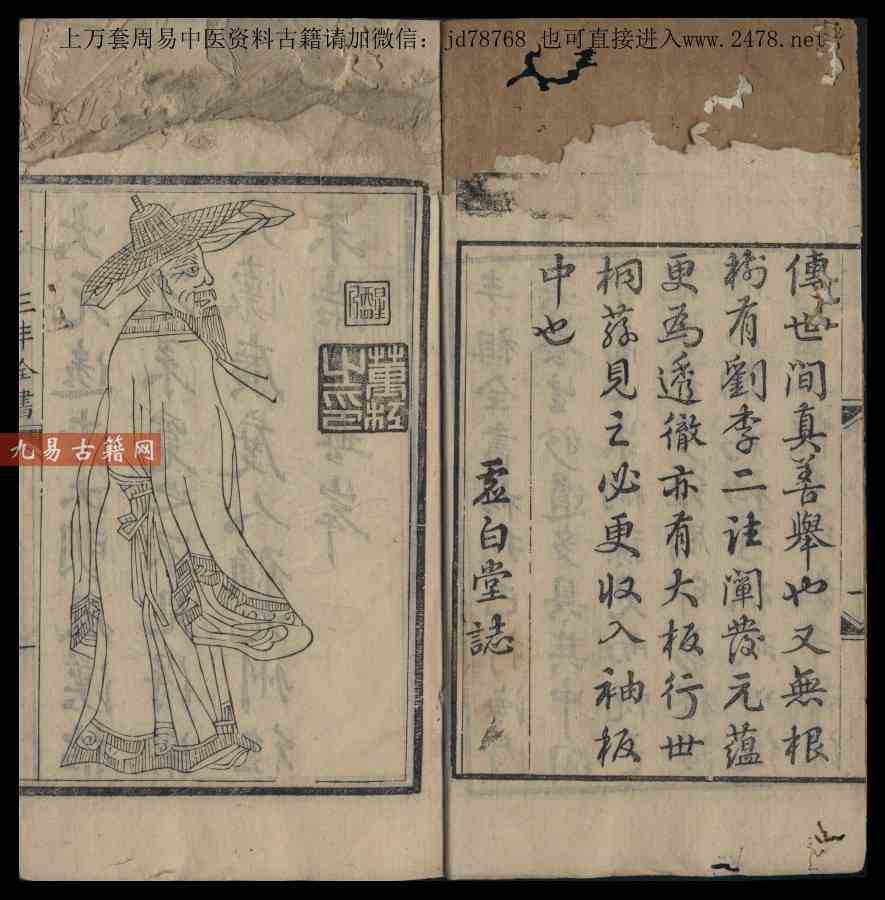 上万套周易中医资料古籍请加微信：jd78768 也可直接进入www.2478.net
傳世間真善舉也又無根
樹有劉李二註闡發元蘊
更為透徹亦有大板行世
桐蓀見之必更收入袖板
中也
虛白堂誌
三丰全書
九易古籍网